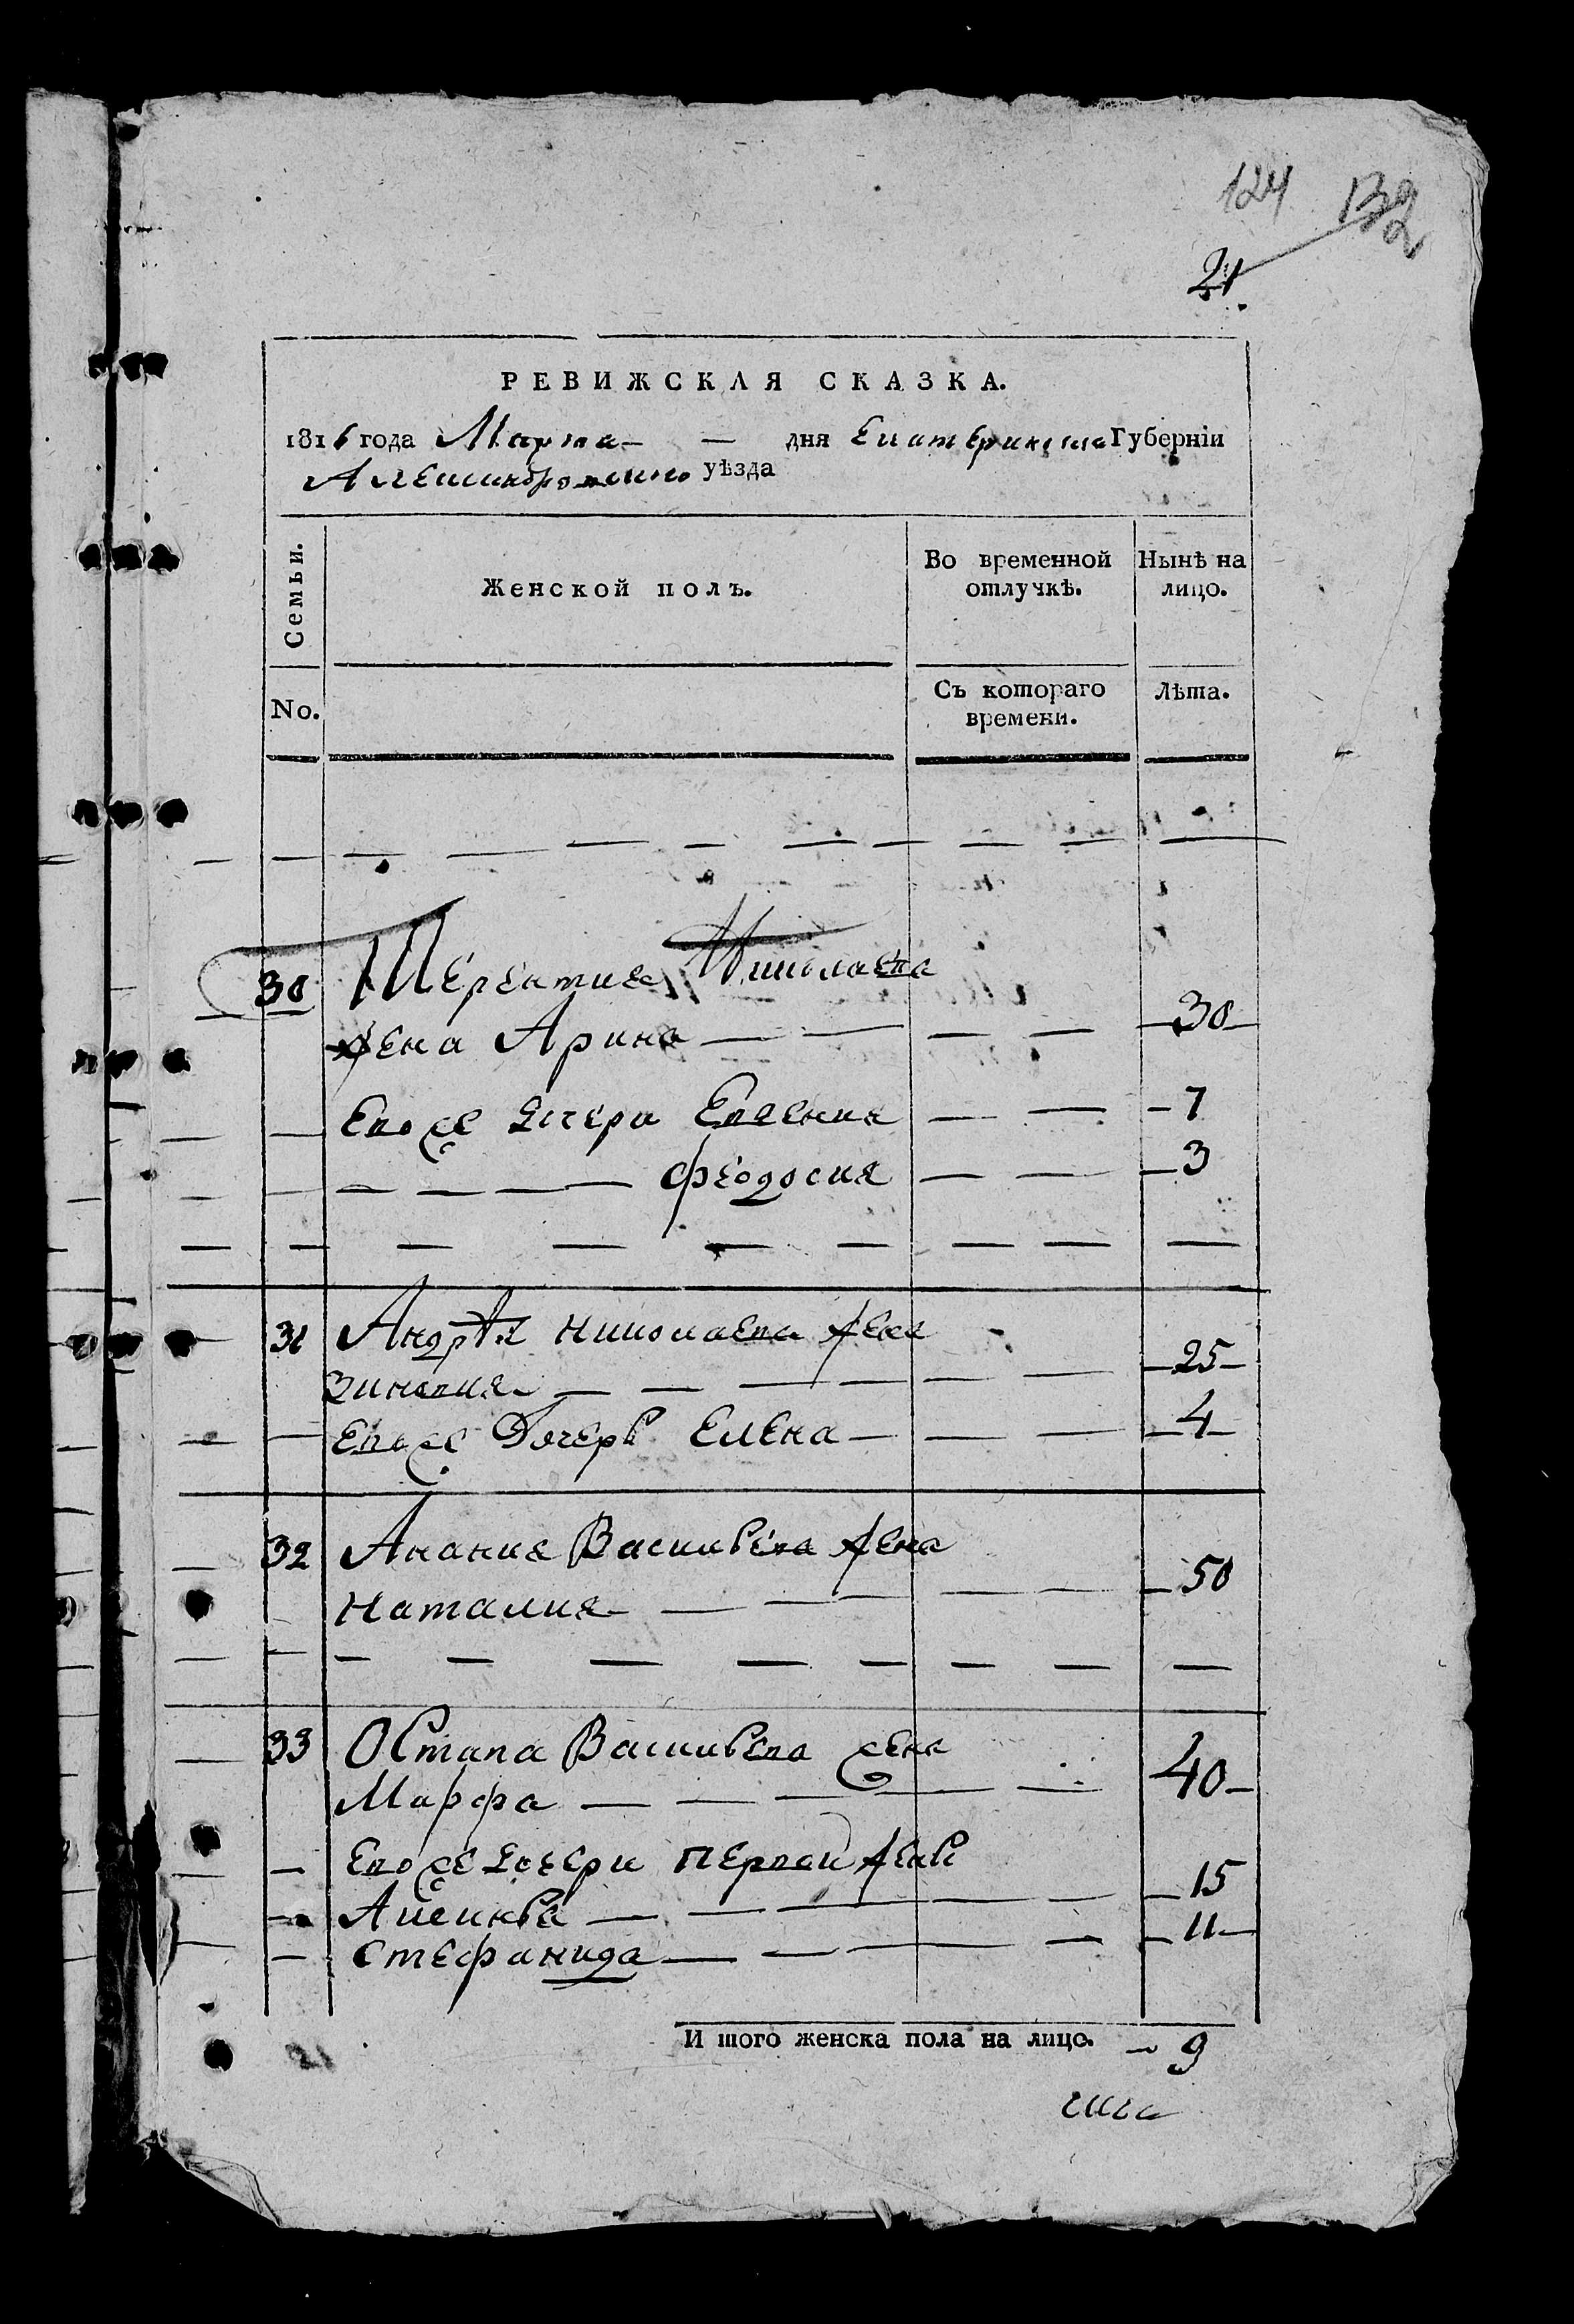 124 132
21
РЕВИЖСКАЯ СКАЗКА.
1816 года Марта — — дня Екатеринос. Губерніи
Александровского уѣзда
Семьи. Женской полъ. Во временной отлучкѣ. Нынѣ на лицо.
No. Съ котораго времени. Лѣта.
30 Терентия Николаева
жена Арина — — — — 30
Ево же дочери Евдения — — 7
— — — — Феодосия — — 3
31 Андрѣя Николаева жена
Зиновия — — — — — — 25
Ево же Дочерь Елена — — — 4
32 Анания Васильева жена
Наталия — — — — — 50
33 Остапа Васильева жена
Марфа — — — — — 40
— Ево же дочери первой жены
— Аксинья — — — — — 15
— Стефанида — — — — 11
И того женска пола на лицо. — 9